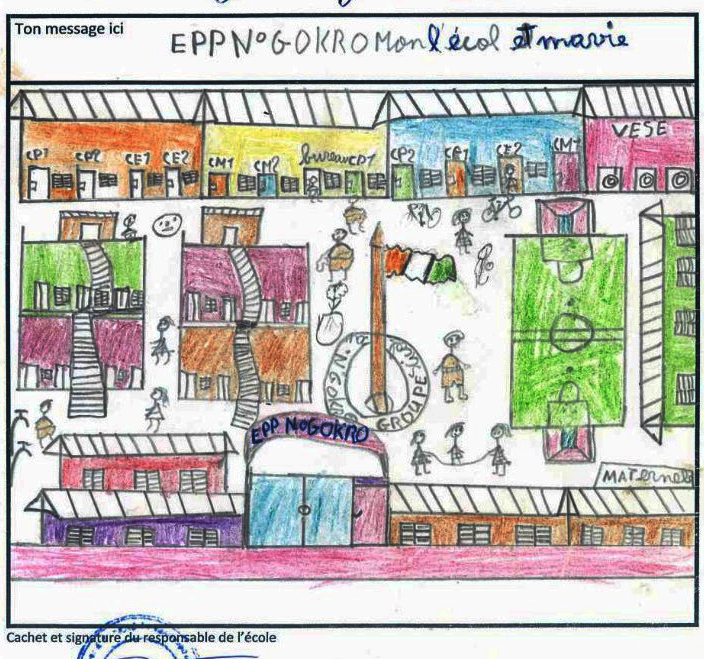 Ton message ici
EPP N°GOKRO Mon l'écol et ma vie
VESE
CP1 CP2 CE1 CE2
CM1 CM2 bureau CP1
CP2 CE1 CE2 CM1
GROUPE
EPP N°GOKRO
MAternel
Cachet et signature du responsable de l'école